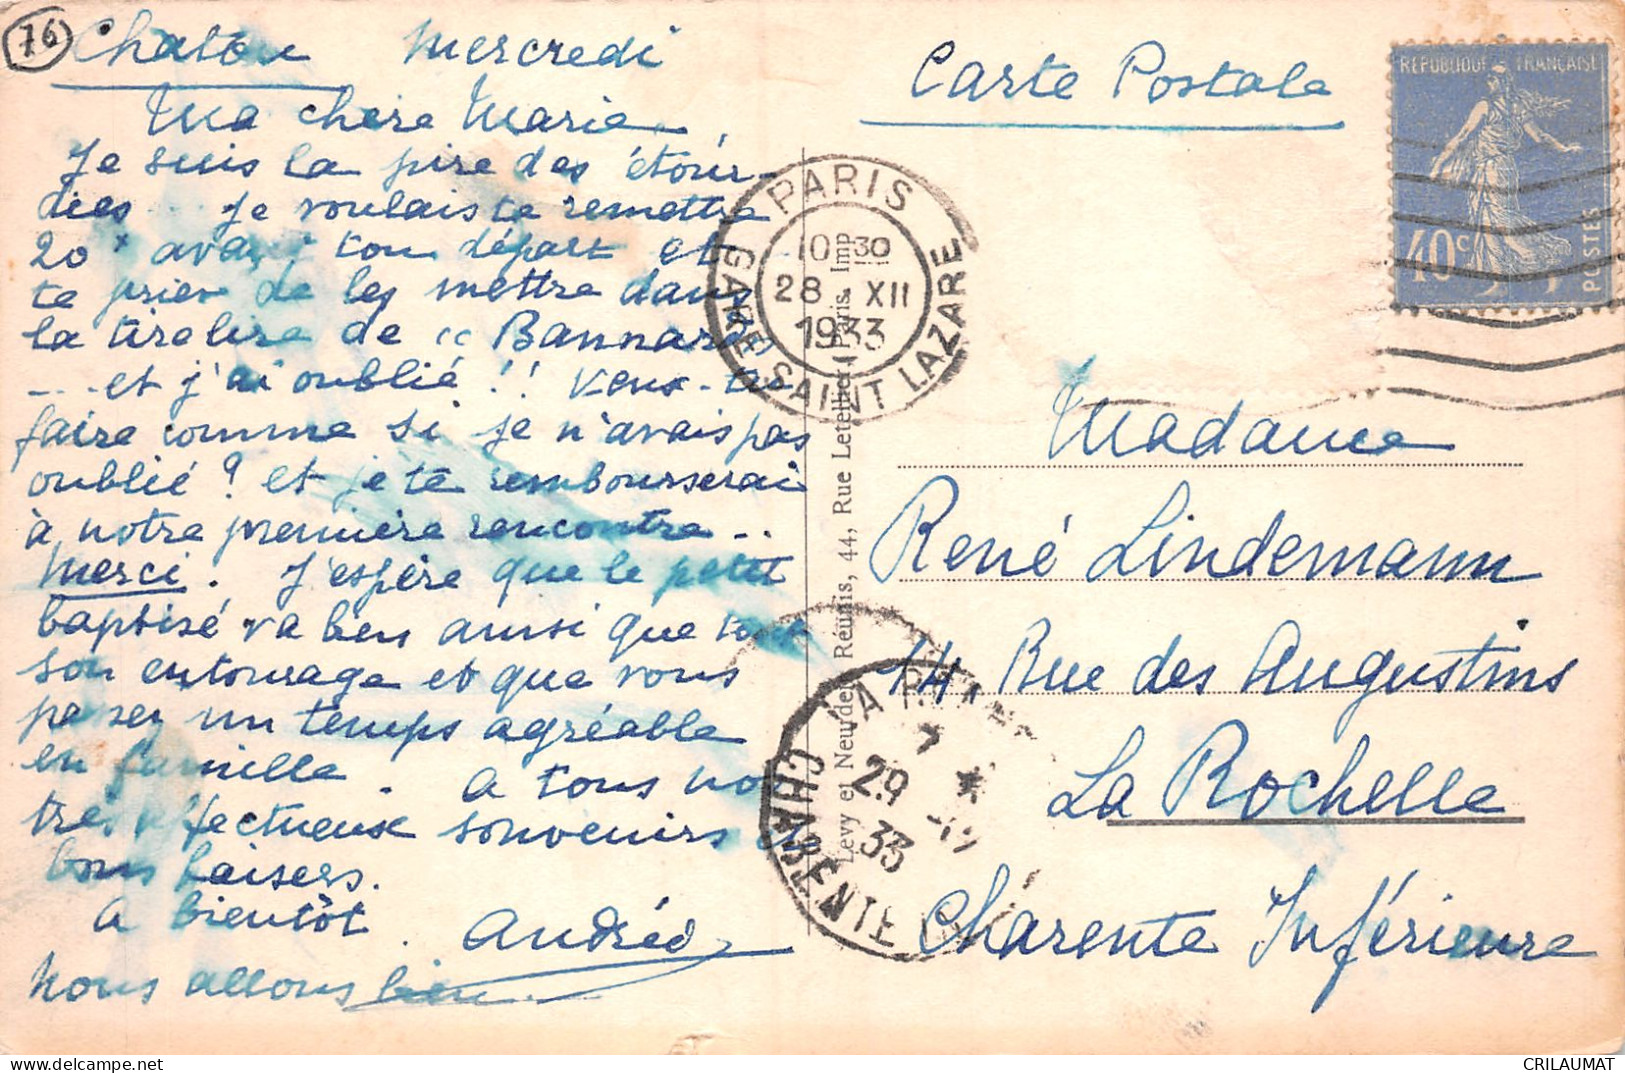 76
Chatou Mercredi
Ma chère Marie,
Je suis la pire des étour-
dies... Je voulais te remettre
20 avant ton départ et
te prier de les mettre dans
la tirelire de
.... et j'ai oublié !! Veux-tu
faire comme si je n'avais pas
oublié ? et je te rembourserai
à notre première rencontre...
Merci. J'espère que le petit
baptisé va bien ainsi que tout
son entourage et que vous
passez un temps agréable
en famille. A tous nos
très affectueux souvenirs et
bons baisers.
A bientôt. Andrée
Nous allons bien.
Carte Postale
REPUBLIQUE FRANÇAISE
40c
POSTES
PARIS
GARE SAINT LAZARE
10 30
28 XII
1933
Levy et Neurdein Réunis, 44, Rue Letellier, Paris. Imp
LA ROCHELLE
7 *
29 -12
33
CHARENTE INF
Madame
René Lindemann
14 Rue des Augustins
La Rochelle
Charente Inférieure
CRILAUMAT